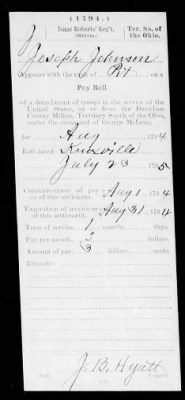 (1794.)
J Isaac Roberts' Reg't, Ter. So. of the Ohio.
Joseph Johnson
Appears with the rank of Pvt on a
Pay Roll
of a detachment of troops in the service of the
United States, at or from the Davidson
County Militia, Territory South of the Ohio,
under the command of George McLean,
for Aug , 1794
Roll dated Knoxville
July 23 , 1795
Commencement of pay or of this settlement. Aug 1 , 1794
Expiration of service or of this settlement. Aug 31 , 1794
Term of service, 1 months, days.
Pay per month, 3 dollars, cents.
Amount of pay, 3 dollars, cents.
Remarks:
J. B. Hyatt
Copyist.